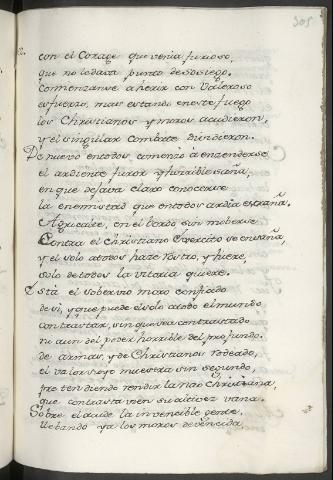 305
con el Corage que venia furioso,
que no le dava punto de sosiego.
Comenzanse a herir con Valeroso
esfuerzo, mas estando en este fuego
los Christianos y moros acudieron,
y el singular Combate dividieron.
De nuevo en todos comenzò à enzenderse
el ardiente furor y horrible saña,
en que dejava claro conocerse
la enemistad que en todos ardia estraña.
Agricalte, en el bordo sin moberse
Contra el Christiano Exercito se ensaña,
y el solo a todos haze rostro, y hiere,
solo de todos la vitoria quiere.
Està el sobervio moro confiado
de si, y que puede el solo a todo el mundo
contrastar, sin que sea contrastado
ni aun del poder horrible del profundo.
de armas, y de Christianos rodeado,
el valor suyo muestra sin segundo,
pretendiendo rendir la nao Christiana,
que contrasta bien su altivez vana.
Sobre el acude la invencible gente,
llebando ya los moros de vencida,